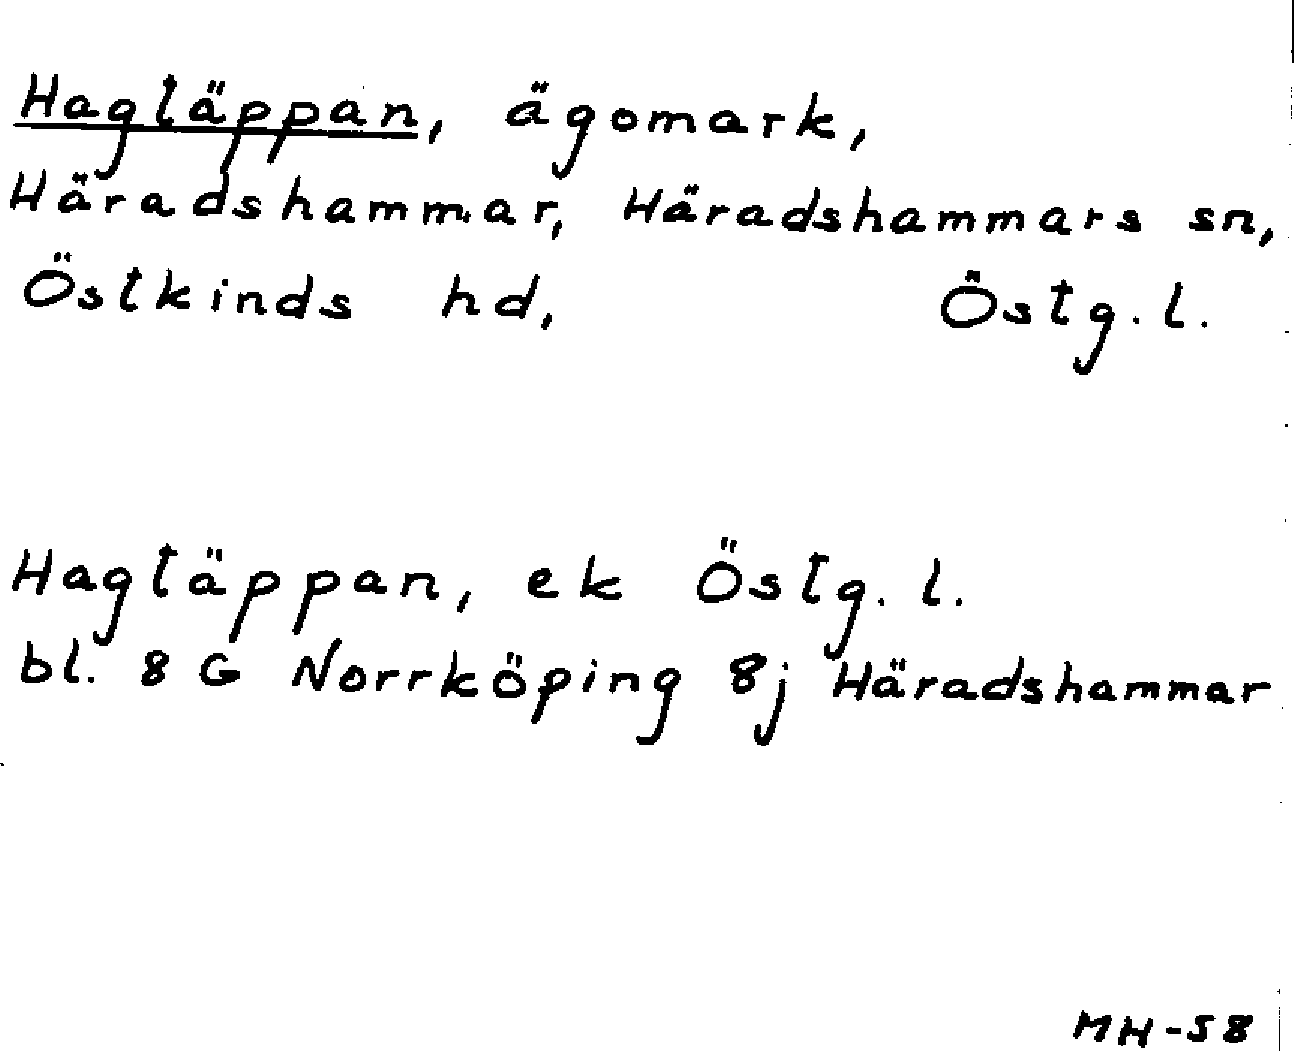 Hagtäppan, ägomark,
Häradshammar, Häradshammars sn,
Östkinds hd, Östg. l.
Hagtäppan, ek Östg. l.
bl. 8 G Norrköping 8j Häradshammar
MH-58